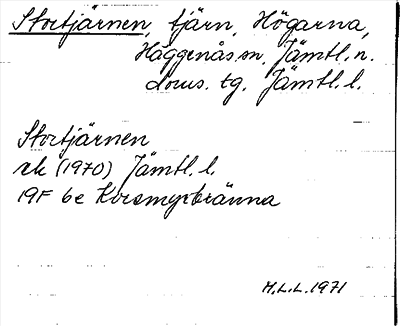 Stortjärnen, tjärn, Högarna,
Häggenås sn, Jämtl. n.
doms. tg. Jämtl. l.
Stortjärnen
ek (1970) Jämtl. l.
19F 6e Korsmyrbränna
M.L.L. 1971